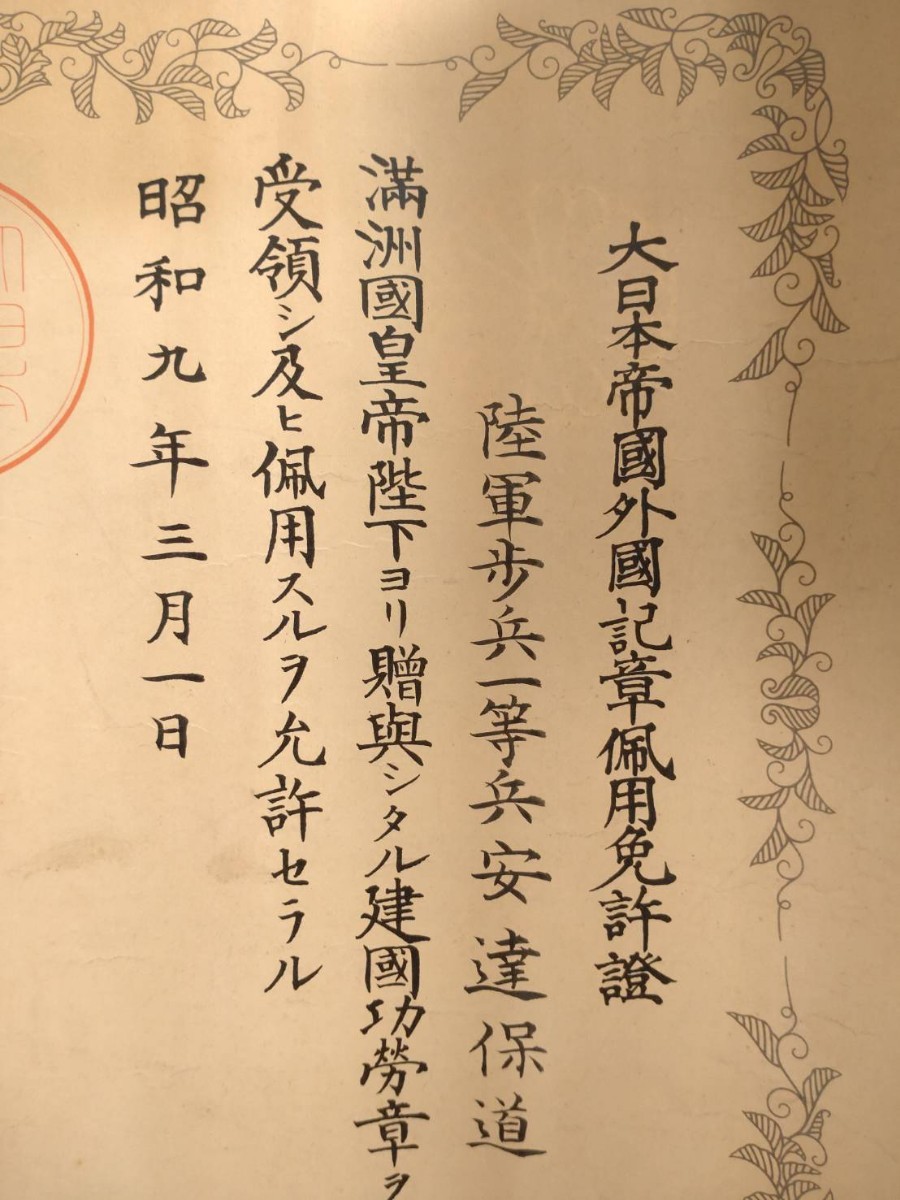 大日本帝國外國記章佩用免許證
陸軍歩兵一等兵安達保道
滿洲國皇帝陛下ヨリ贈與シタル建國功勞章ヲ
受領シ及ヒ佩用スルヲ允許セラル
昭和九年三月一日